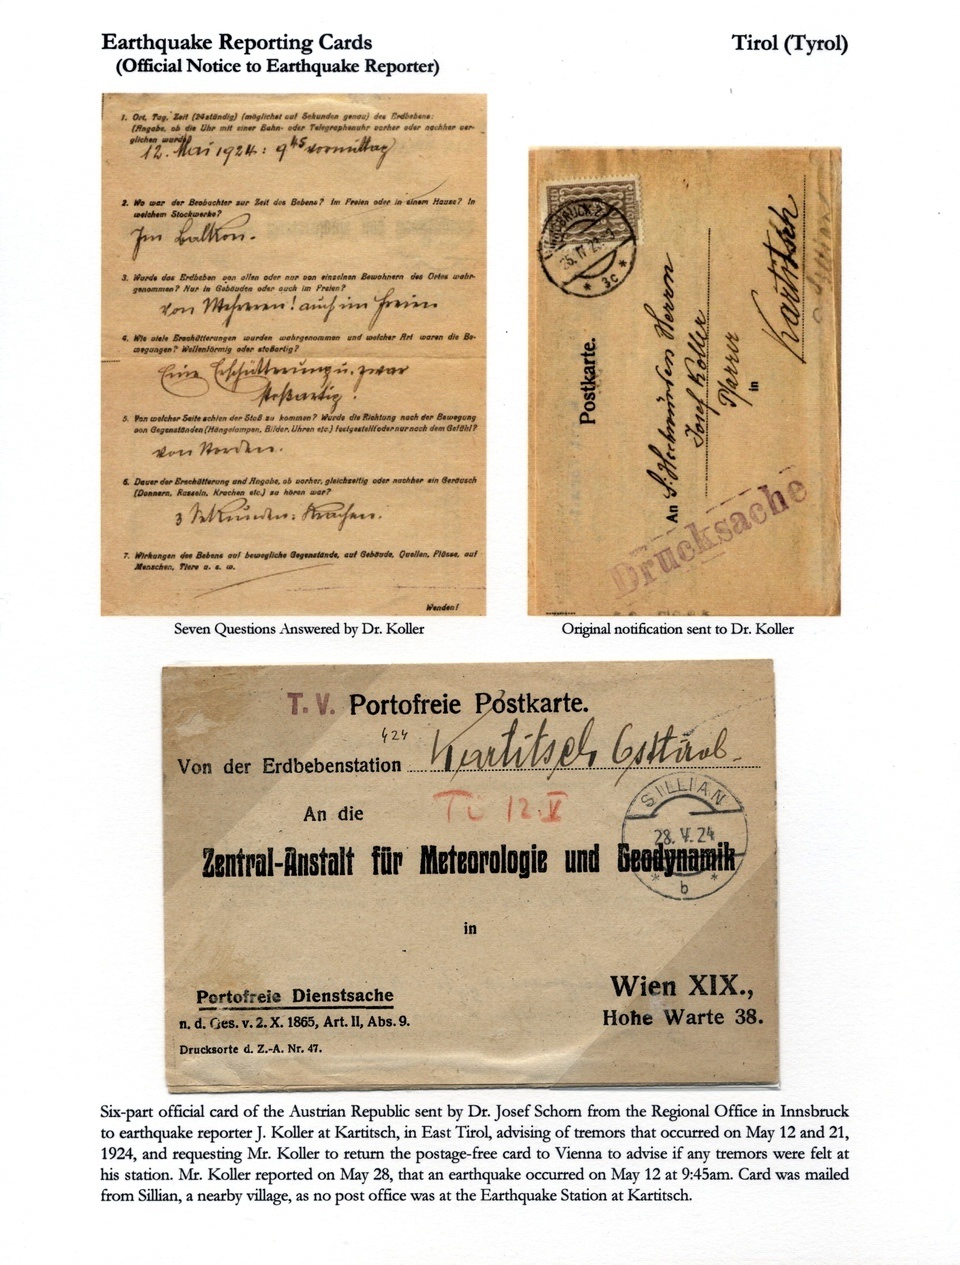 Earthquake Reporting Cards
(Official Notice to Earthquake Reporter)
Tirol (Tyrol)
1. Ort, Tag, Zeit (24stündig) (möglichst auf Sekunden genau) des Erdbebens:
(Angabe, ob die Uhr mit einer Bahn- oder Telegraphenuhr vorher oder nachher ver-
glichen wurde)
12. Mai 1924: 9 45 vormittag
2. Wo war der Beobachter zur Zeit des Bebens? Im Freien oder in einem Hause? In
welchem Stockwerke?
Im Balkon.
3. Wurde das Erdbeben von allen oder nur von einzelnen Bewohnern des Ortes wahr-
genommen? Nur in Gebäuden oder auch im Freien?
von Mehreren! auch im Freien
4. Wie viele Erschütterungen wurden wahrgenommen und welcher Art waren die Be-
wegungen? Wellenförmig oder stoßartig?
Eine Erschütterung u. zwar
stoßartig!
5. Von welcher Seite schien der Stoß zu kommen? Wurde die Richtung nach der Bewegung
von Gegenständen (Hängelampen, Bilder, Uhren etc.) festgestellt oder nur nach dem Gefühl?
von Norden.
6. Dauer der Erschütterung und Angabe, ob vorher, gleichzeitig oder nachher ein Geräusch
(Donnern, Rasseln, Krachen etc.) zu hören war?
3 Sekunden: Krachen.
7. Wirkungen des Bebens auf bewegliche Gegenstände, auf Gebäude, Quellen, Flüsse, auf
Menschen, Tiere u. s. w.
Wenden!
Seven Questions Answered by Dr. Koller
INNSBRUCK 2
3c
Postkarte.
An S. Hochwürden Herrn
Josef Koller
Pfarrer
in
Kartitsch
Drucksache
Original notification sent to Dr. Koller
T. V. Portofreie Postkarte.
424
Von der Erdbebenstation Kartitsch Osttirol
An die
12. V
SILLIAN
28. V. 24
b
Zentral-Anstalt für Meteorologie und Geodynamik
in
Wien XIX.,
Hohe Warte 38.
Portofreie Dienstsache
n. d. Ges. v. 2. X. 1865, Art. II, Abs. 9.
Drucksorte d. Z.-A. Nr. 47.
Six-part official card of the Austrian Republic sent by Dr. Josef Schorn from the Regional Office in Innsbruck
to earthquake reporter J. Koller at Kartitsch, in East Tirol, advising of tremors that occurred on May 12 and 21,
1924, and requesting Mr. Koller to return the postage-free card to Vienna to advise if any tremors were felt at
his station. Mr. Koller reported on May 28, that an earthquake occurred on May 12 at 9:45am. Card was mailed
from Sillian, a nearby village, as no post office was at the Earthquake Station at Kartitsch.